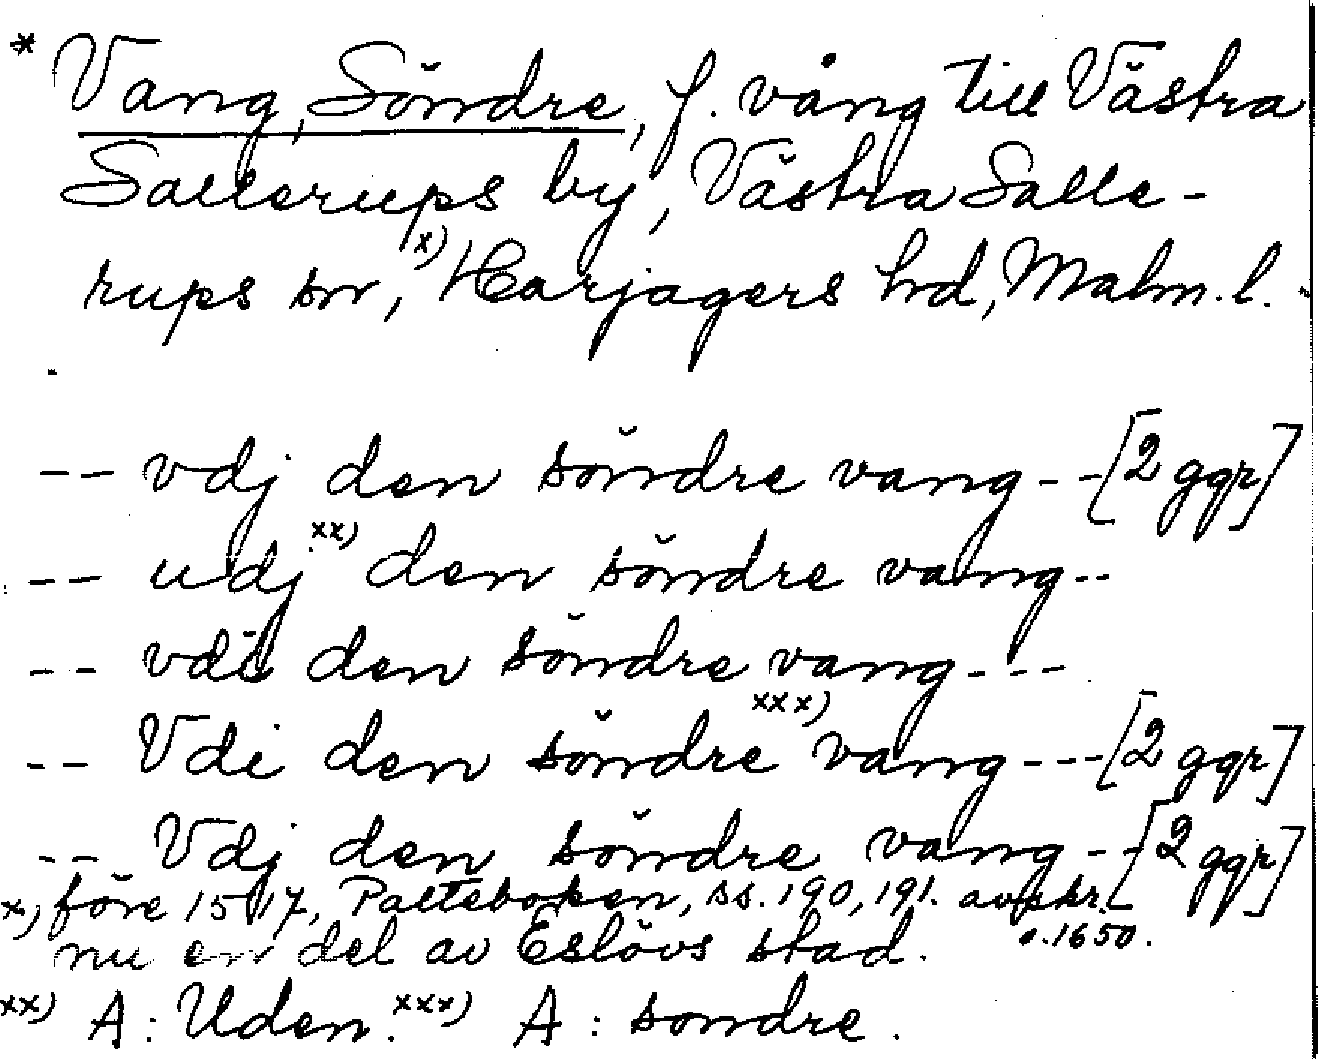 * Vang, Söndre, f. vång till Västra
Sallerups by, Västra Salle-
rups sn, x) Harjagers hd, Malm. l.
-- vdj den söndre vang -- [2 ggr]
-- udj xx) den söndre vang --
-- vdi den söndre vang ---
-- Vdi den söndre xxx) vang --- [2 ggr]
-- Vdj den söndre vang -- [2 ggr]
före 1517, Palteboken, ss. 190, 191. avskr.
o. 1650.
x) nu en del av Eslövs stad.
xx) A: Uden. xxx) A: sondre.